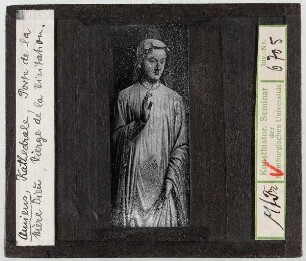 Amiens, Kathedrale, Porte de la
Mère Dieu, Vierge de la Visitation.
Kunsthistor. Seminar
der
Hamburgischen Universität
Inv. Nr.
6705